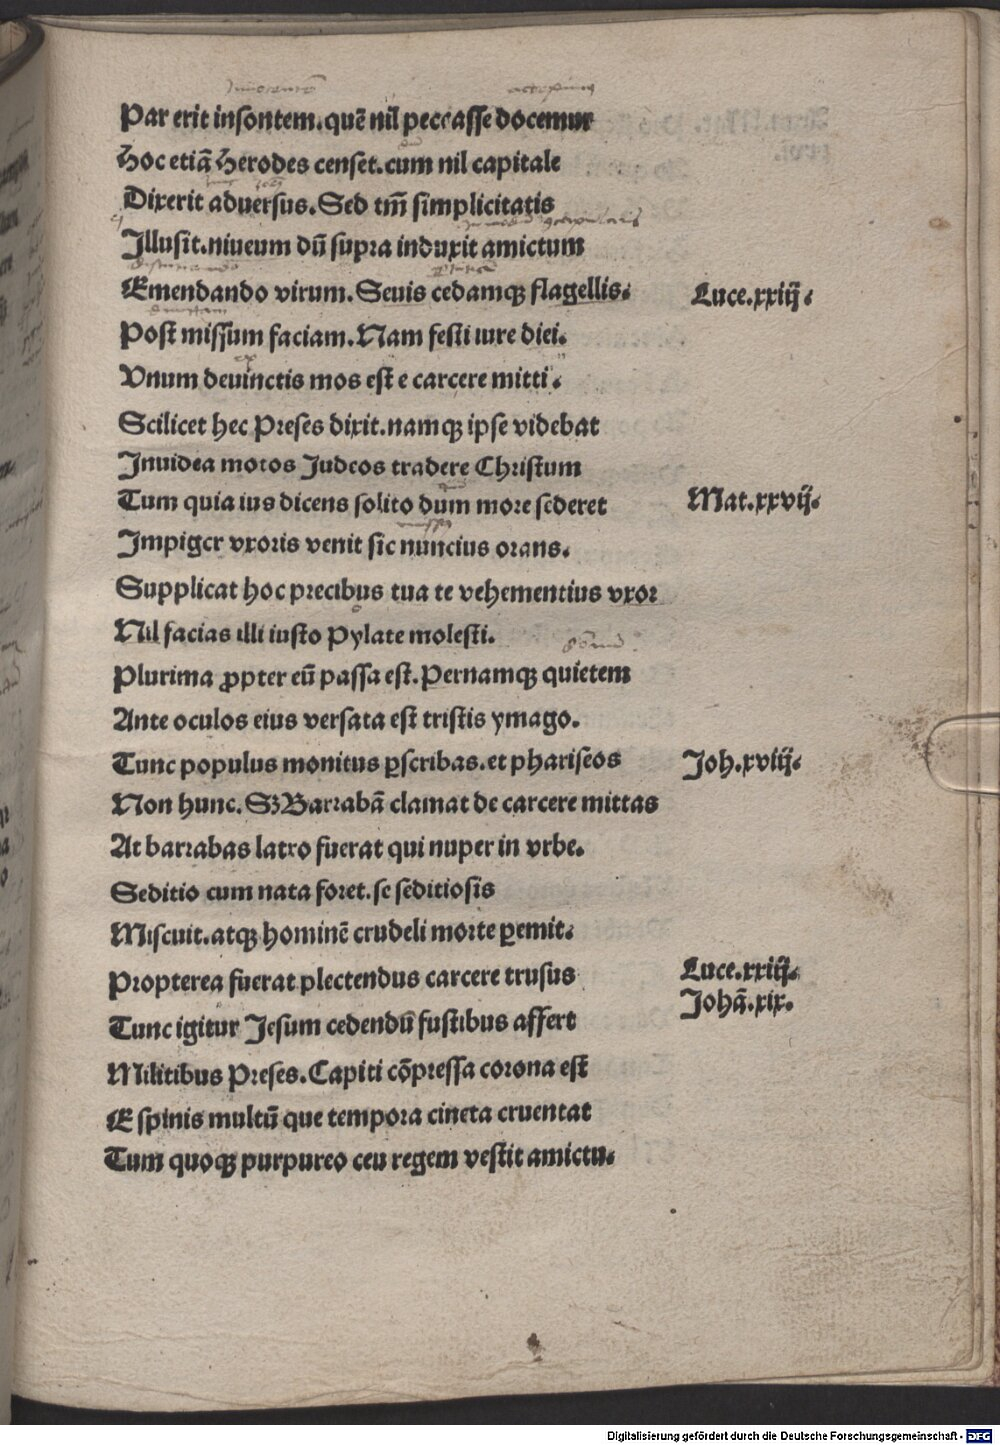 Par erit insontem. quē nil peccasse docemur
Hoc etiā Herodes censet. cum nil capitale
Dixerit aduersus. Sed tm̄ simplicitatis
Illusit. niueum dū supra induxit amictum
Emendando virum. Seuis cedamqꝫ flagellis. Luce. xxiij.
Post missum faciam. Nam festi iure diei.
Vnum deuinctis mos est e carcere mitti.
Scilicet hec Preses dixit. namqꝫ ipse videbat
Inuidea motos Iudeos tradere Christum
Tum quia ius dicens solito dum more sederet Mat. xxvij.
Impiger vxoris venit sic nuncius orans.
Supplicat hoc precibus tua te vehementius vxor
Nil facias illi iusto Pylate molesti.
Plurima ꝓpter eū passa est. Pernamqꝫ quietem
Ante oculos eius versata est tristis ymago.
Tunc populus monitus ꝑscribas. et phariseos Joh. xviij.
Non hunc. Sꝫ Barrabā clamat de carcere mittas
At barrabas latro fuerat qui nuper in vrbe.
Seditio cum nata foret. se seditiosis
Miscuit. atqꝫ hominē crudeli morte ꝑemit.
Propterea fuerat plectendus carcere trusus Luce. xxiij.
Johā. xix.
Tunc igitur Jesum cedendū fustibus affert
Militibus Preses. Capiti cōpressa corona est
E spinis multū que tempora cineta cruentat
Tum quoqꝫ purpureo ceu regem vestit amictu.
Digitalisierung gefördert durch die Deutsche Forschungsgemeinschaft - DFG